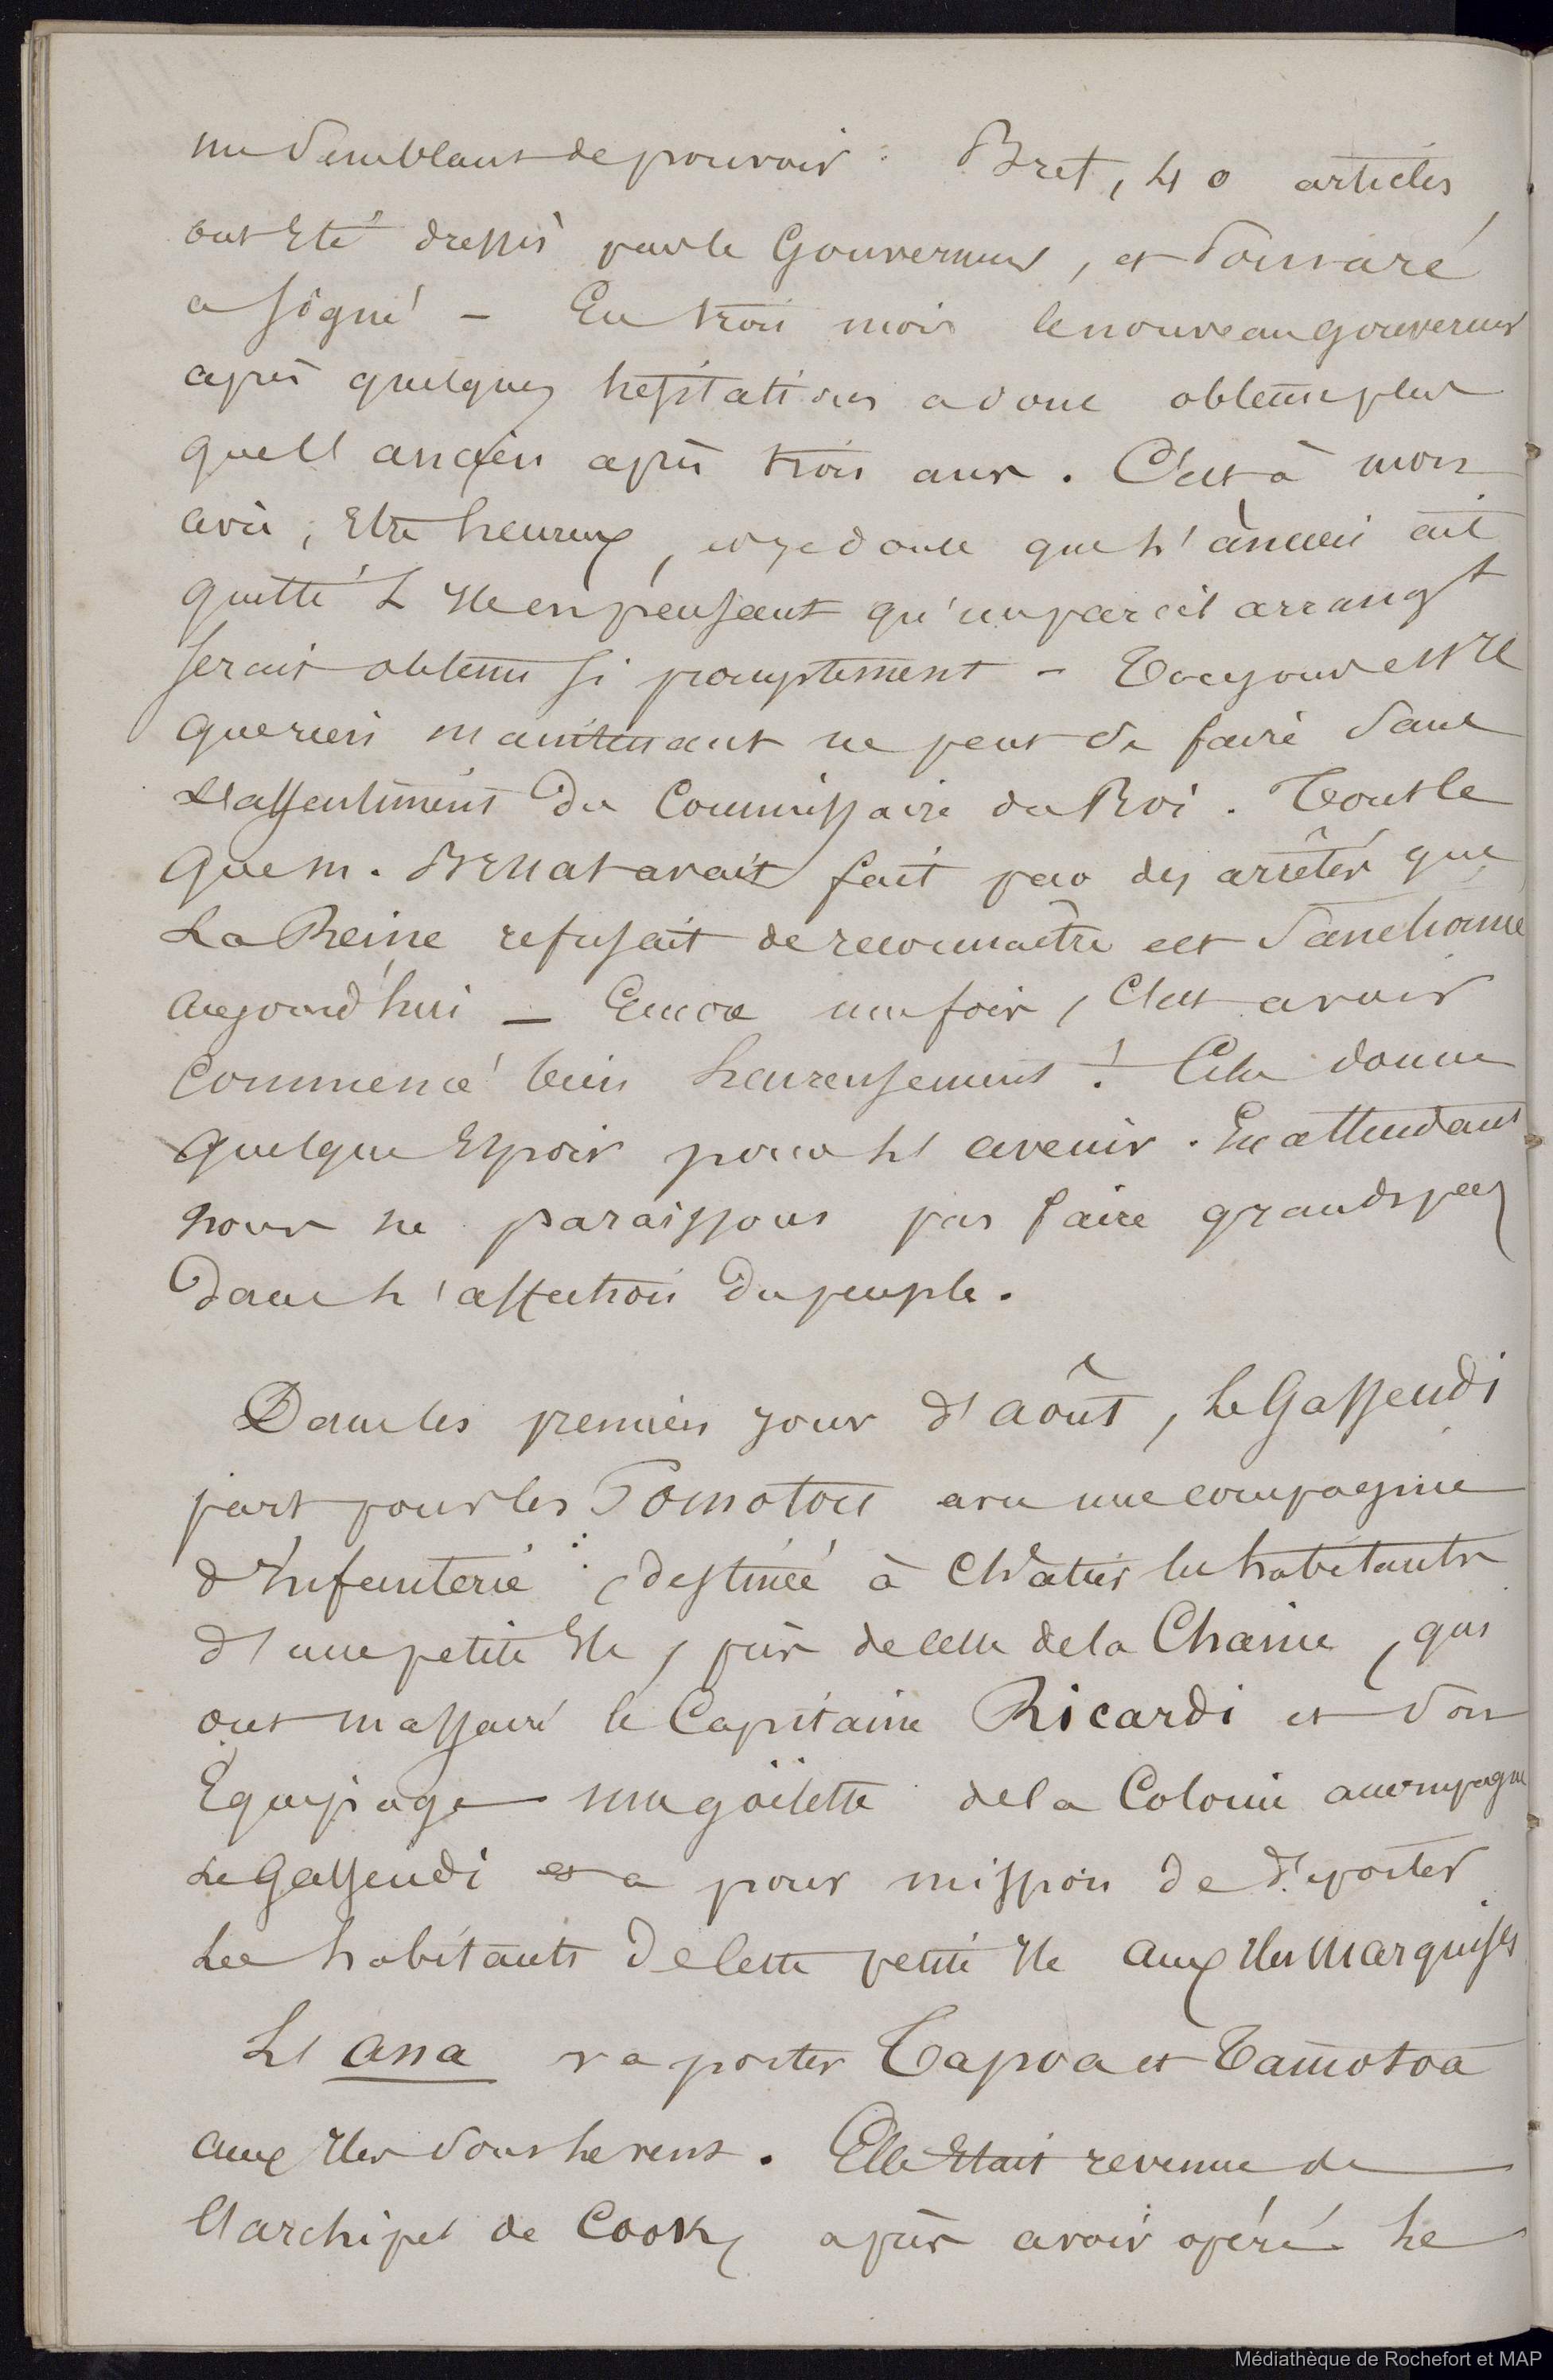 un Semblant de pouvoir. Bref, 40 articles
ont Eté dressés par le Gouverneur, et Pomaré
a signé – En trois mois le nouveau gouverneur
après quelques hésitations a donc obtenu plus
que l'ancien après trois ans. C'est à mon
avis, Etre heureux, et je doute que l'ancien ait
quitté L'Ile en pensant qu'un pareil arrangt
serait obtenu si promptement – Toujours est-il
que rien maintenant ne peut se faire sans
L'assentiment Du Commissaire du Roi. Tout ce
que M. Bruat avait fait par des arrêtés que
La Reine refusait de reconnaître est Sanctionné
aujourd'hui – Encore une fois, C'est avoir
Commencé bien heureusement ! Cela donne
quelque Espoir pour L'avenir. En attendant
nous ne paraissons pas faire grands pas
Dans L'affection Du peuple.
Dans les premiers jours d'août, Le Gassendi
part pour les Pomotou avec une compagnie
d'Infanterie, destinée à Châtier les habitants
d'une petite Ile, près de celle de la Chaine, qui
ont massacré le Capitaine Ricardi et Son
Equipage une goëlette de la Colonie accompagne
Le Gassendi et a pour mission de déporter
Les habitants De cette petite Ile aux Iles Marquises
L'Ana va porter Tapoa et Tamotoa
aux Iles Sous le vent. Elle Etait revenue de
L'archipel de Cook, après avoir opéré Le